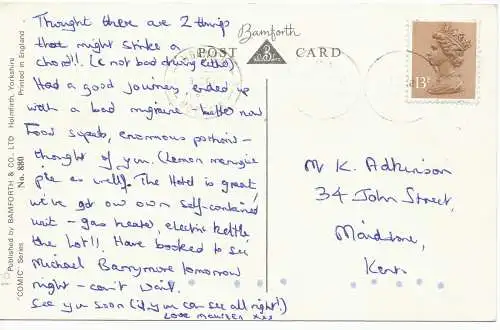 Thought there are 2 things
that might strike a
chord!! (& not bad driving either)
Had a good journey, ended up
with a bad migraine - better now
Food superb, enormous portions -
thought of you. (Lemon meringue
pie as well)! The Hotel is great,
we've got our own self-contained
unit - gas heater, electric kettle
the lot!! Have booked to see
Michael Barrymore tomorrow
night - can't wait.
See you soon (if you can see all right!)
Love Maureen xxx
Published by BAMFORTH & CO., LTD Holmfirth, Yorkshire
Printed in England
"COMIC" Series No. 880
Bamforth
POST CARD
13P
Mr K. Adkinson
34 John Street,
Maidstone,
Kent